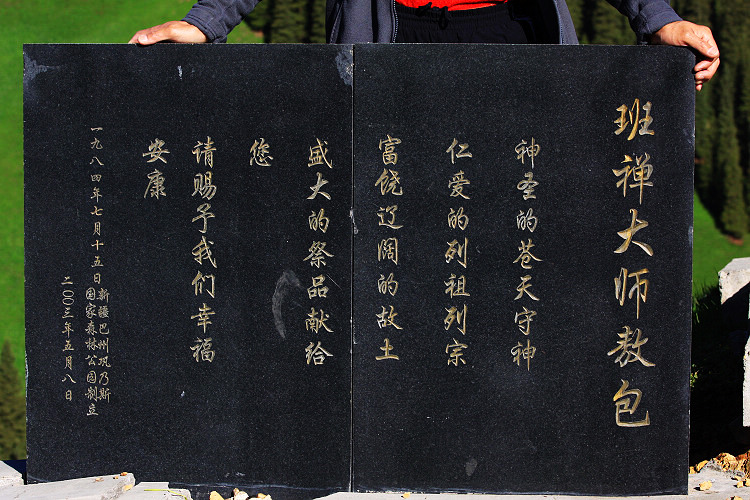 班禅大师敖包
神圣的苍天守神
仁爱的列祖列宗
富饶辽阔的故土
盛大的祭品献给
您
请赐予我们幸福
安康
一九八四年七月十五日
新疆巴州巩乃斯
国家森林公园制立
二〇〇三年五月八日